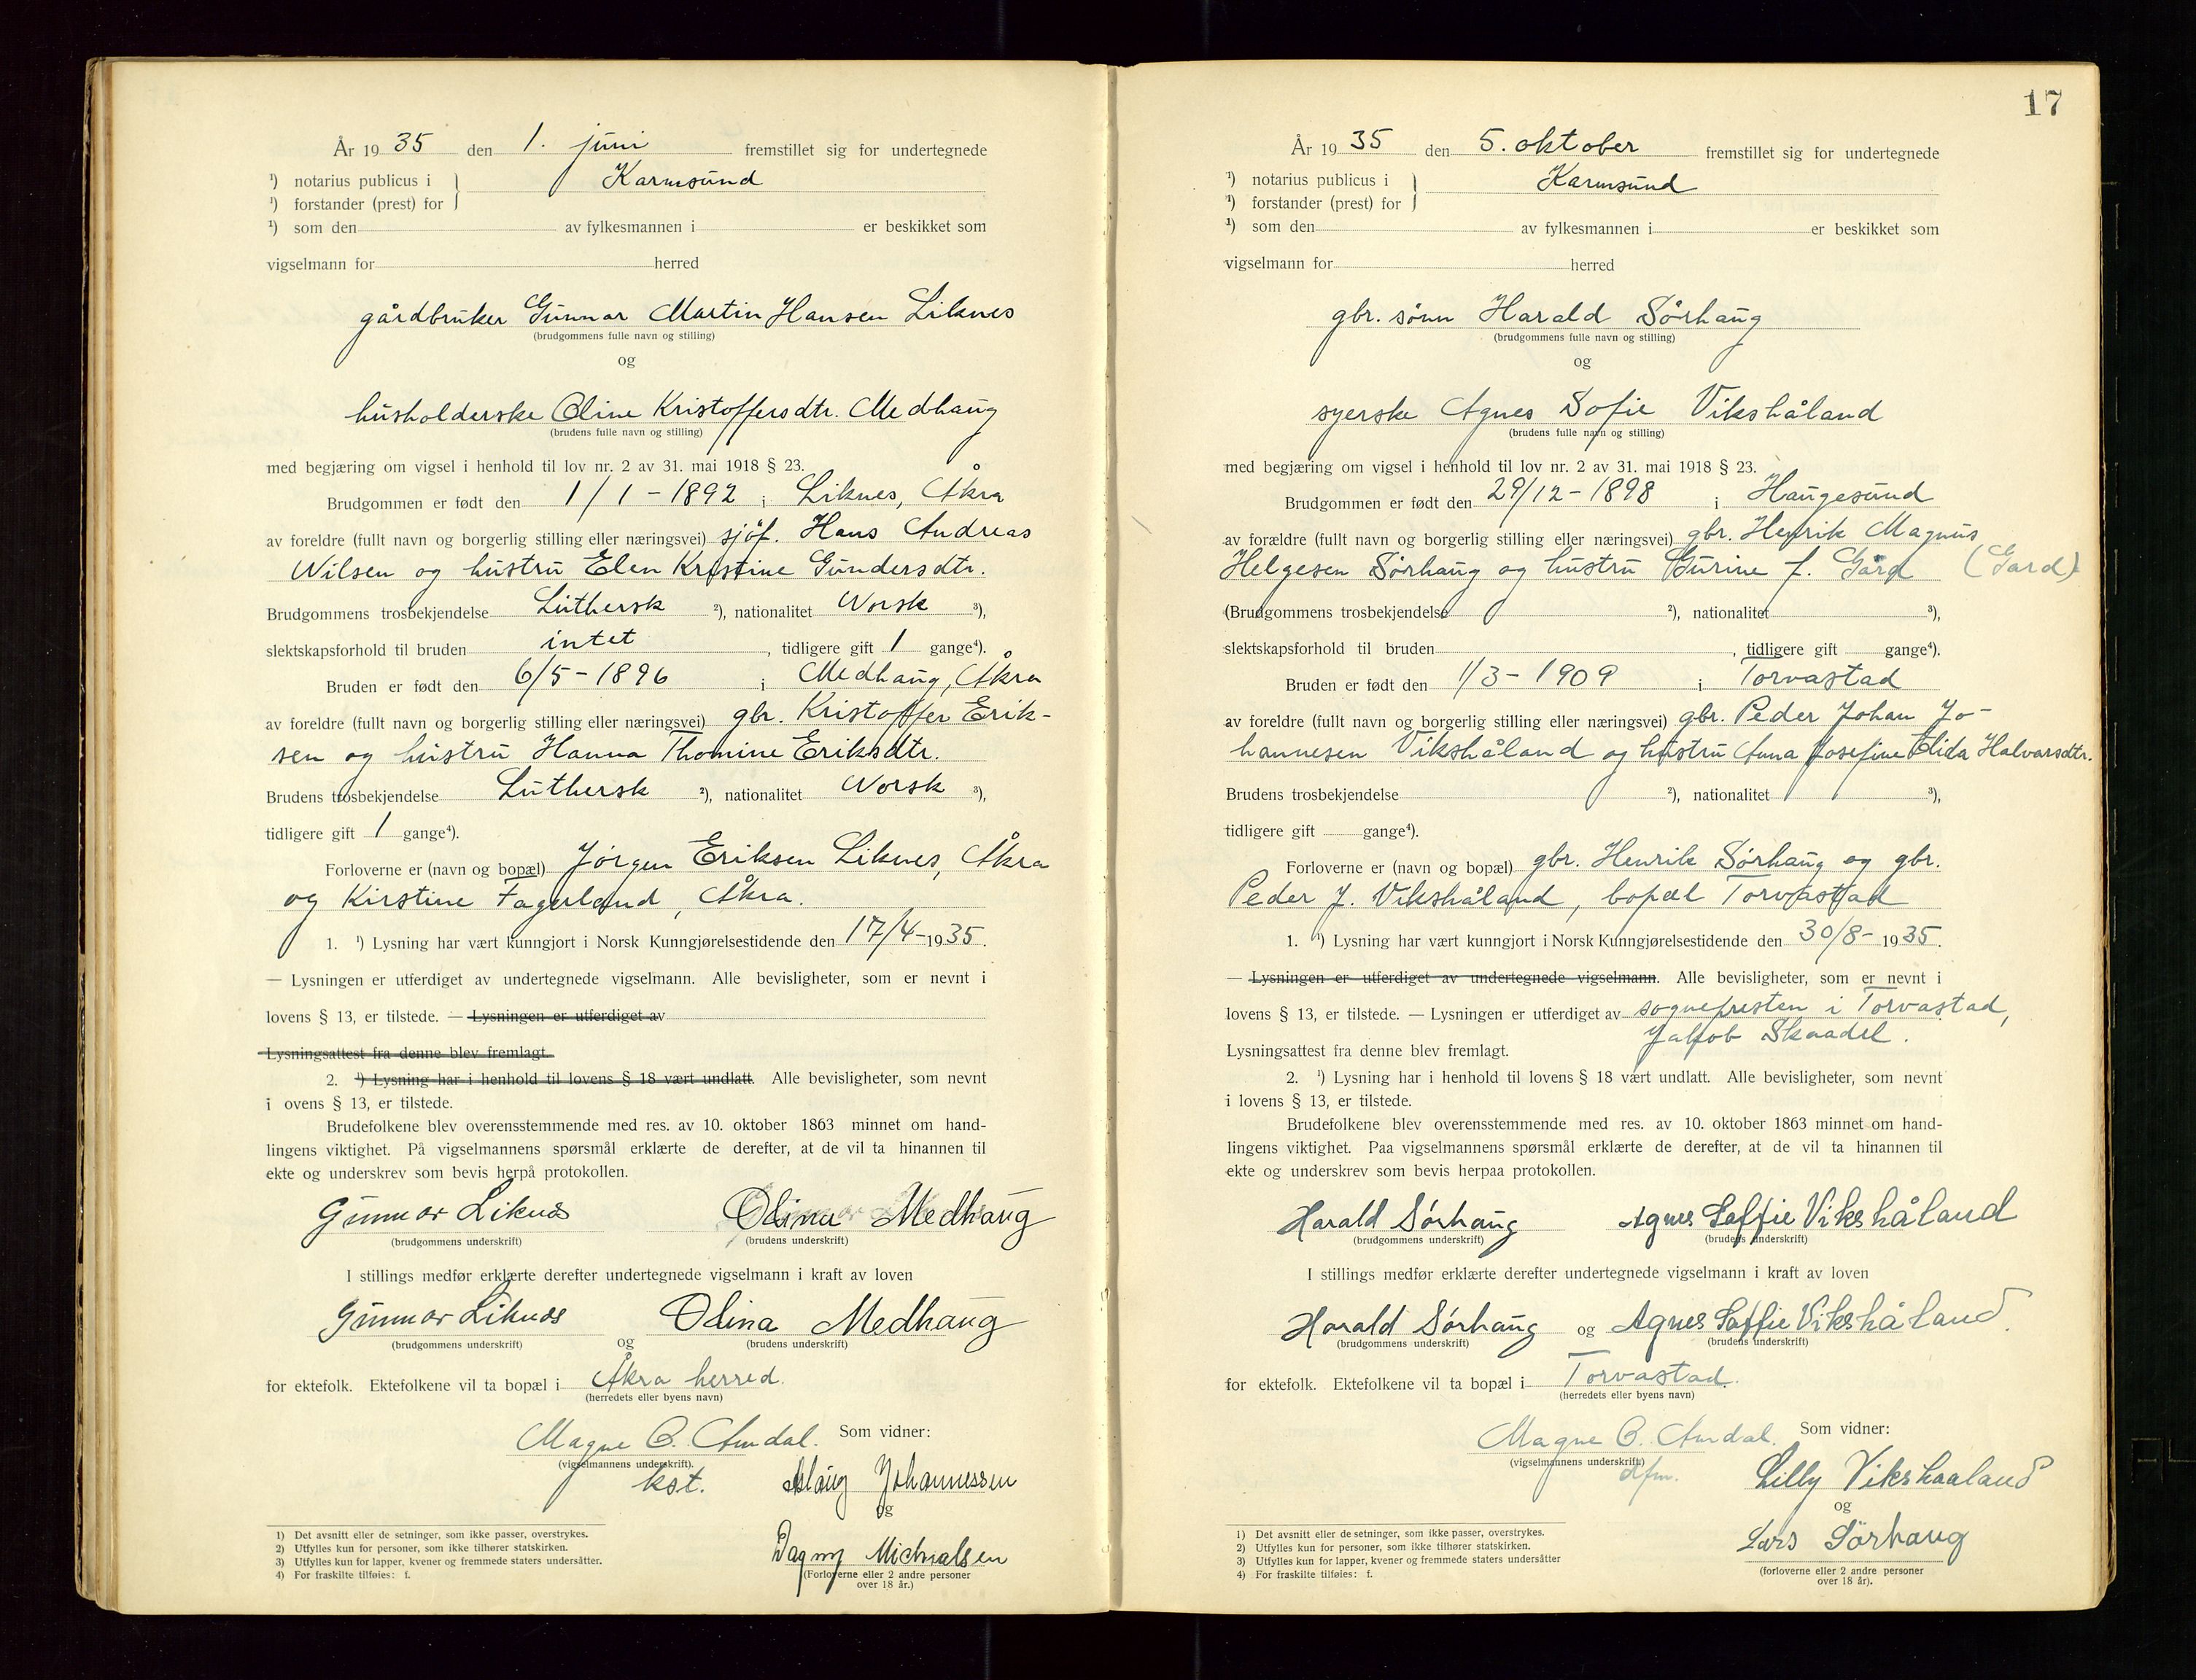 År 1935 den 1. juni fremstillet sig for undertegnede
¹) notarius publicus i } Karmsund
¹) forstander (prest) for
¹) som den av fylkesmannen i er beskikket som
vigselmann for herred
gårdbruker Gunnar Martin Hansen Liknes
(brudgommens fulle navn og stilling)
og
husholderske Oline Kristoffersdtr. Medhaug
(brudens fulle navn og stilling)
med begjæring om vigsel i henhold til lov nr. 2 av 31. mai 1918 § 23.
Brudgommen er født den 1/1-1892 i Liknes, Åkra
av foreldre (fullt navn og borgerlig stilling eller næringsvei) sjøf. Hans Andreas
Nilsen og hustru Elen Kristine Gundersdtr.
Brudgommens trosbekjendelse Luthersk ²), nationalitet Norsk ³),
slektskapsforhold til bruden intet, tidligere gift 1 gange⁴).
Bruden er født den 6/5-1896 i Medhaug, Åkra
av foreldre (fullt navn og borgerlig stilling eller næringsvei) gbr. Kristoffer Erik-
sen og hustru Hanna Thomine Eriksdtr.
Brudens trosbekjendelse Luthersk ²), nationalitet Norsk ³),
tidligere gift 1 gange⁴).
Forloverne er (navn og bopæl) Jørgen Eriksen Liknes, Åkra
og Kirstine Fagerland, Åkra.
1. ¹) Lysning har vært kunngjort i Norsk Kunngjørelsestidende den 17/4-1935.
— Lysningen er utferdiget av undertegnede vigselmann. Alle bevisligheter, som er nevnt i
lovens § 13, er tilstede. — Lysningen er utferdiget av
Lysningsattest fra denne blev fremlagt.
2. ¹) Lysning har i henhold til lovens § 18 vært undlatt. Alle bevisligheter, som nevnt
i ovens § 13, er tilstede.
Brudefolkene blev overensstemmende med res. av 10. oktober 1863 minnet om hand-
lingens viktighet. På vigselmannens spørsmål erklærte de derefter, at de vil ta hinannen til
ekte og underskrev som bevis herpå protokollen.
Gunnar Liknes Olina Medhaug
(brudgommens underskrift) (brudens underskrift)
I stillings medfør erklærte derefter undertegnede vigselmann i kraft av loven
Gunnar Liknes og Olina Medhaug
(brudgommens underskrift) (brudens underskrift)
for ektefolk. Ektefolkene vil ta bopæl i Åkra herred.
(herredets eller byens navn)
Magne C. Amdal. Som vidner:
(vigselmannens underskrift).
kst. Aslaug Johannessen
og
Dagny Michalsen
(Forloverne eller 2 andre personer
over 18 år.)
1) Det avsnitt eller de setninger, som ikke passer, overstrykes.
2) Utfylles kun for personer, som ikke tilhører statskirken.
3) Utfylles kun for lapper, kvener og fremmede staters undersåtter.
4) For fraskilte tilføies: f.
17
År 1935 den 5. oktober fremstillet sig for undertegnede
¹) notarius publicus i } Karmsund
¹) forstander (prest) for
¹) som den av fylkesmannen i er beskikket som
vigselmann for herred
gbr. sønn Harald Sørhaug
(brudgommens fulle navn og stilling)
og
syerske Agnes Sofie Vikshåland
(brudens fulle navn og stilling)
med begjæring om vigsel i henhold til lov nr. 2 av 31. mai 1918 § 23.
Brudgommen er født den 29/12-1898 i Haugesund
av forældre (fullt navn og borgerlig stilling eller næringsvei) gbr. Henrik Magnus
Helgesen Sørhaug og hustru Gurine f. Gard (Gard)
(Brudgommens trosbekjendelse ²), nationalitet ³),
slektskapsforhold til bruden , tidligere gift gange⁴).
Bruden er født den 1/3-1909 i Torvastad
av foreldre (fullt navn og borgerlig stilling eller næringsvei) gbr. Peder Johan Jo-
hannesen Vikshåland og hustru Anna Josefine Elida Halvarsdtr.
Brudens trosbekjendelse ²), nationalitet ³),
tidligere gift gange⁴).
Forloverne er (navn og bopæl) gbr. Henrik Sørhaug og gbr.
Peder J. Vikshåland, bopæl Torvastad
1. ¹) Lysning har vært kunngjort i Norsk Kunngjørelsestidende den 30/8-1935.
— Lysningen er utferdiget av undertegnede vigselmann. Alle bevisligheter, som er nevnt i
lovens § 13, er tilstede. — Lysningen er utferdiget av sognepresten i Torvastad,
Jakob Skaadel.
Lysningsattest fra denne blev fremlagt.
2. ¹) Lysning har i henhold til lovens § 18 vært undlatt. Alle bevisligheter, som nevnt
i lovens § 13, er tilstede.
Brudefolkene blev overensstemmende med res. av 10. oktober 1863 minnet om hand-
lingens viktighet. Paa vigselmannens spørsmål erklærte de derefter, at de vil ta hinannen til
ekte og underskrev som bevis herpaa protokollen.
Harald Sørhaug Agnes Soffie Vikshåland
(brudgommens underskrift) (brudens underskrift)
I stillings medfør erklærte derefter undertegnede vigselmann i kraft av loven
Harald Sørhaug og Agnes Soffie Vikshåland.
(brudgommens underskrift) (brudens underskrift)
for ektefolk. Ektefolkene vil ta bopæl i Torvastad.
(herredets eller byens navn)
Magne C. Amdal. Som vidner:
(vigselmannens underskrift)
dfm. Lilly Vikshaaland
og
Lars Sørhaug
(forloverne eller 2 andre personer
over 18 år).
1) Det avsnitt eller de setninger, som ikke passer, overstrykes.
2) Utfylles kun for personer, som ikke tilhører statskirken.
3) Utfylles kun for lapper, kvener og fremmede staters undersåtter
4) For fraskilte tilføies: f.